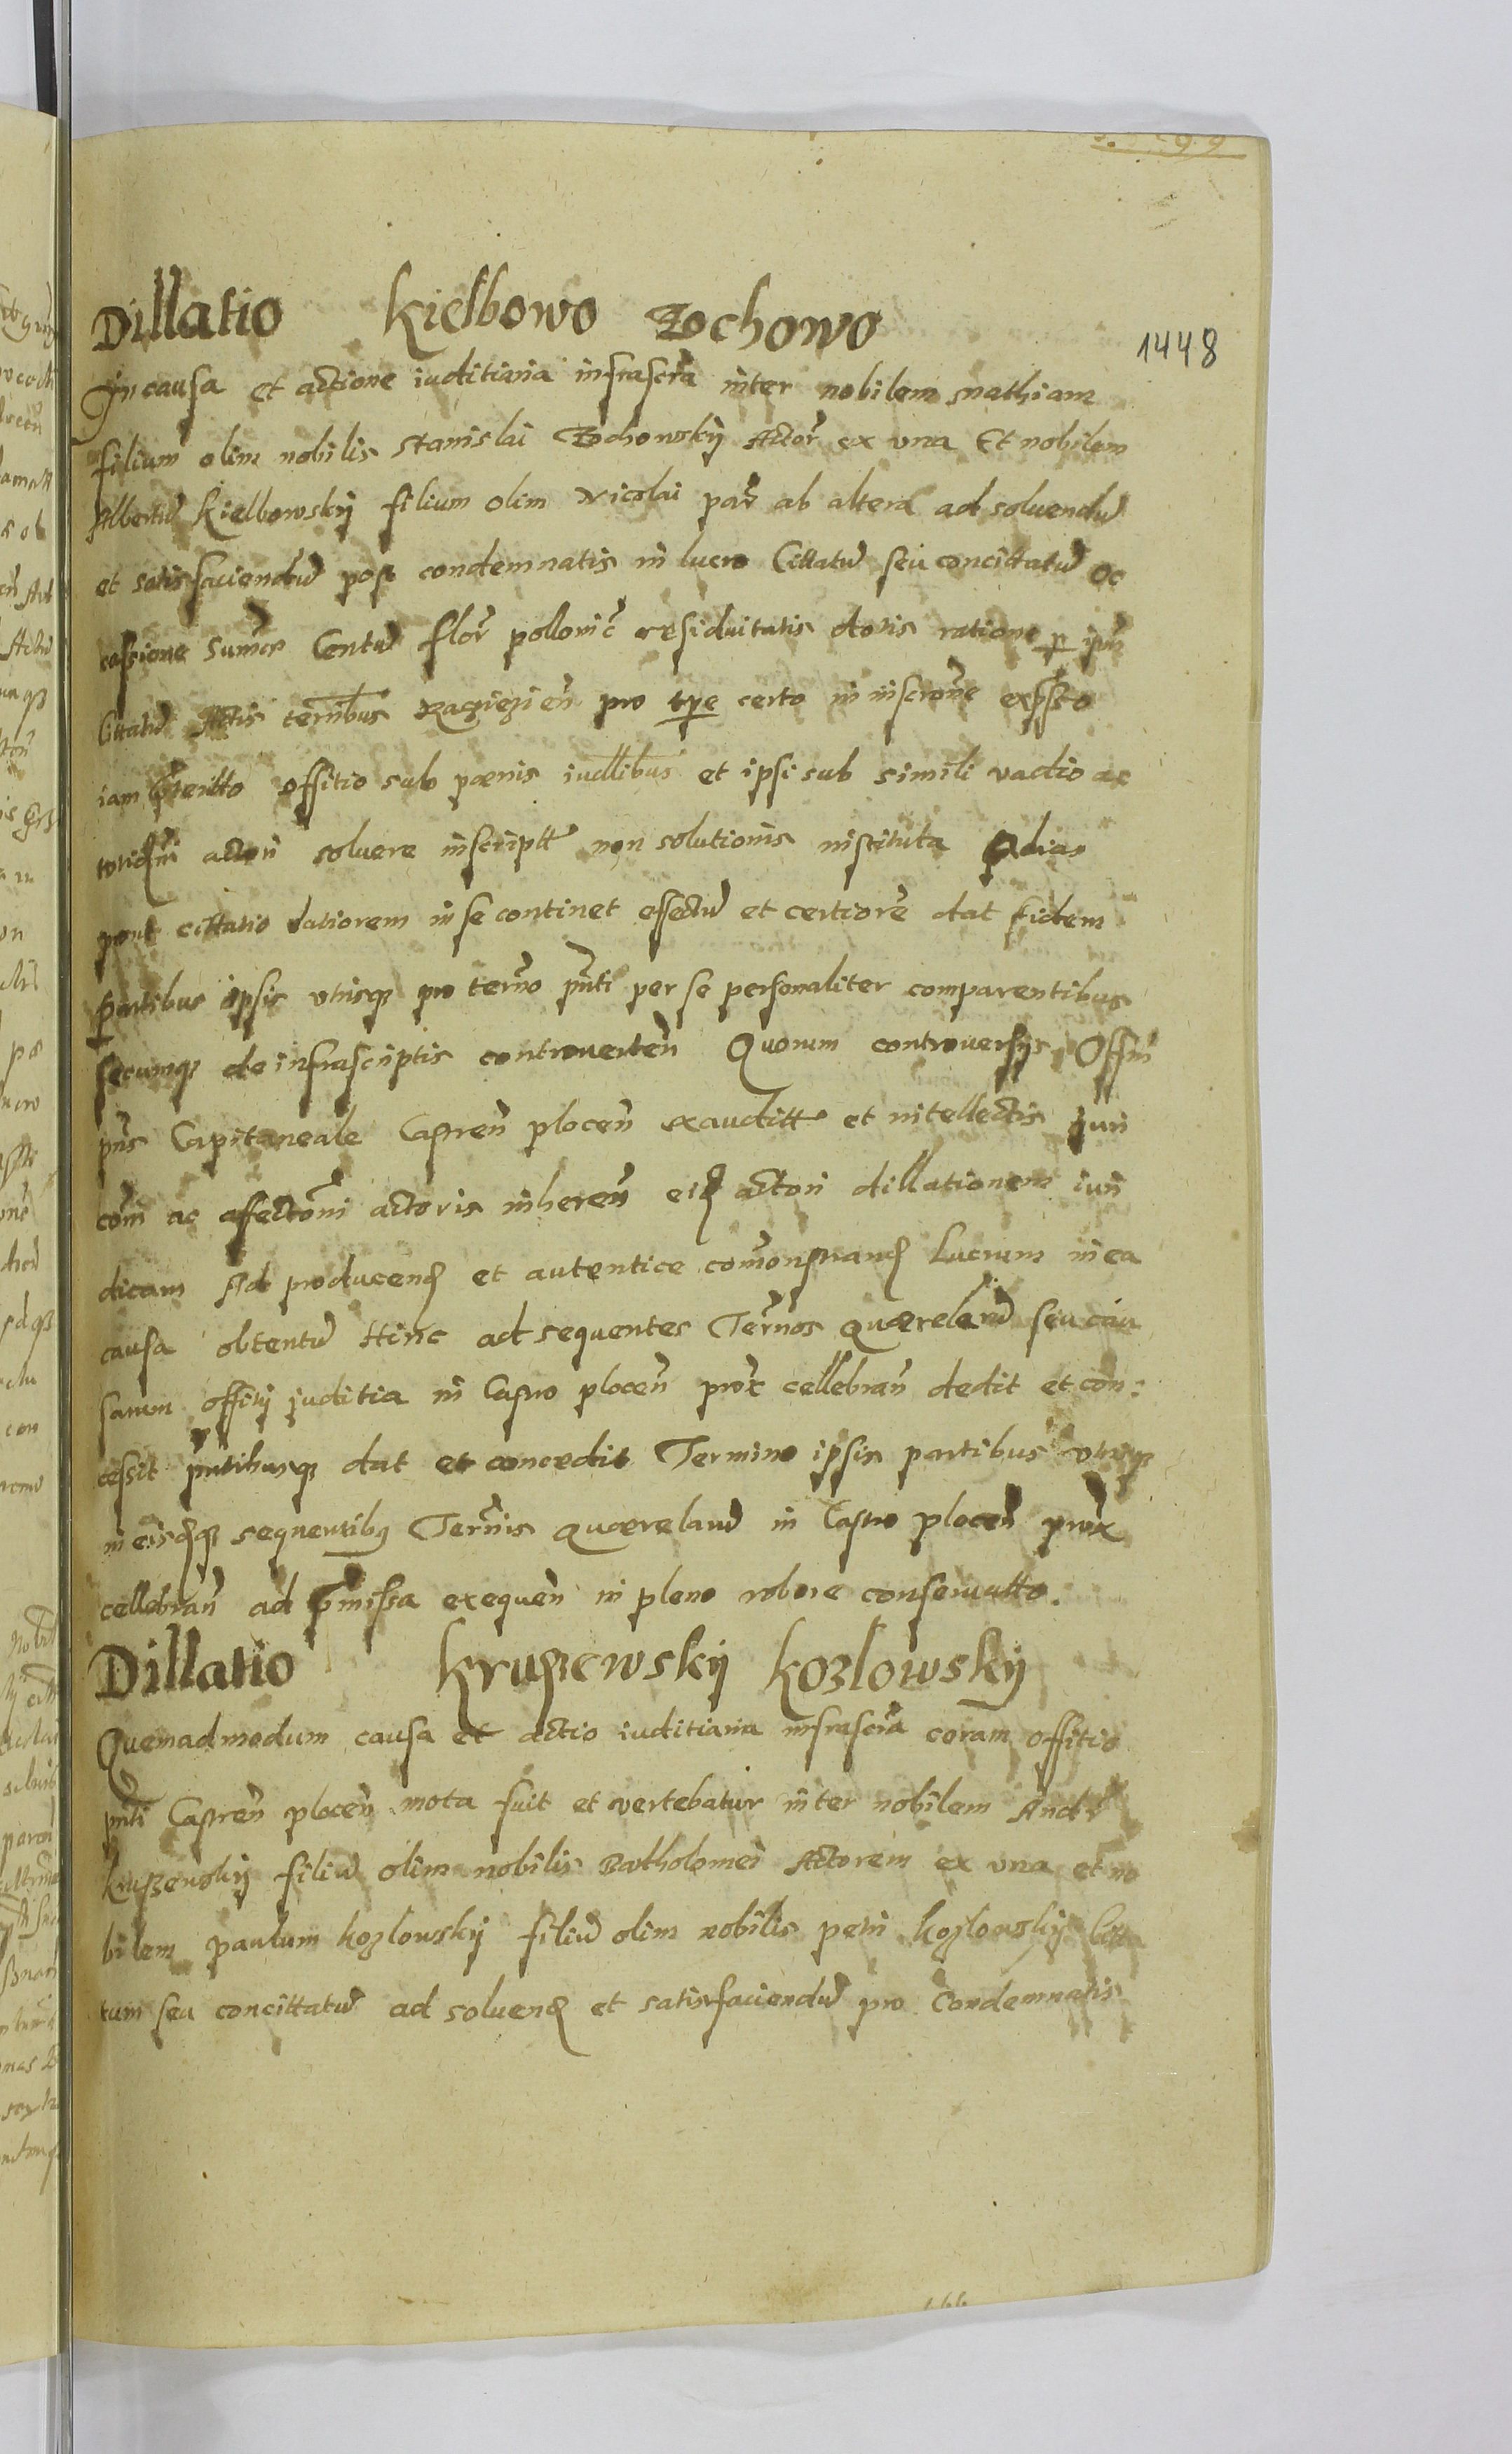 Dillatio Kielbowo Zochowo
1448
In causa et actione iuditiaria infrascra inter nobilem Mathiam
filium olim nobilis Stanislai Zochowskij Actor ex vna Et nobilem
Albertu Kielbowskij filium olim Nicolai par ab altera ad soluendu
et satisfaciendu post condemnatis in lucro Cittatu seu concittatu oc
cassione Sumae Centu flor pollonic residuitatis dotis ratione p ipm
Cittatu Actis terribus Raczięzien pro tpe certo in inscrone expsso
iam praeterito offitio sub paenis iudlibus et ipsi sub simili vadio ac
actori soluere inscriptt non solutionis instituta
prout cittatio latiorem in se continet effectu et certiore dat fidem
Partibus ipsis vtrisq pro termo pnti per se personaliter comparentibus
secumq de infrascriptis controverten Quorum controversijs Offm
pns Capitaneale Castren plocen exauditt et intellectis iuri
com ac affectoni actoris inheren eid actori dillationem iuri
dicam Ad producend et autentice comonstrand Lucrum in ea
causa obtentu Hinc ad sequentes Termos Quaerelaru seu cau
sarum offitij juditia in Castro plocen prox cellebran dedit et con:
cessit pntibusq dat et concedit Termino ipsis partibus vtrisq
in eisdq sequentibus Termis Quaerelaru in Castro plocen prox
cellebran ad pmissa exequen in pleno robore conseruatto.
Dillatio Kruszewskij Kozlowskij
Quemadmodum causa et actio iuditiaria infrascra coram offitio
pnti Castren plocen mota fuit et vertebatur inter nobilem Andr
Kruszewskij filiu olim nobilis Bartholomei Actorem ex vna et no
bilem paulum Kozlowskij filiu olim nobilis petri Kozlowskij Citta
tum seu concittatu ad soluend et satisfaciendu pro Condemnatis